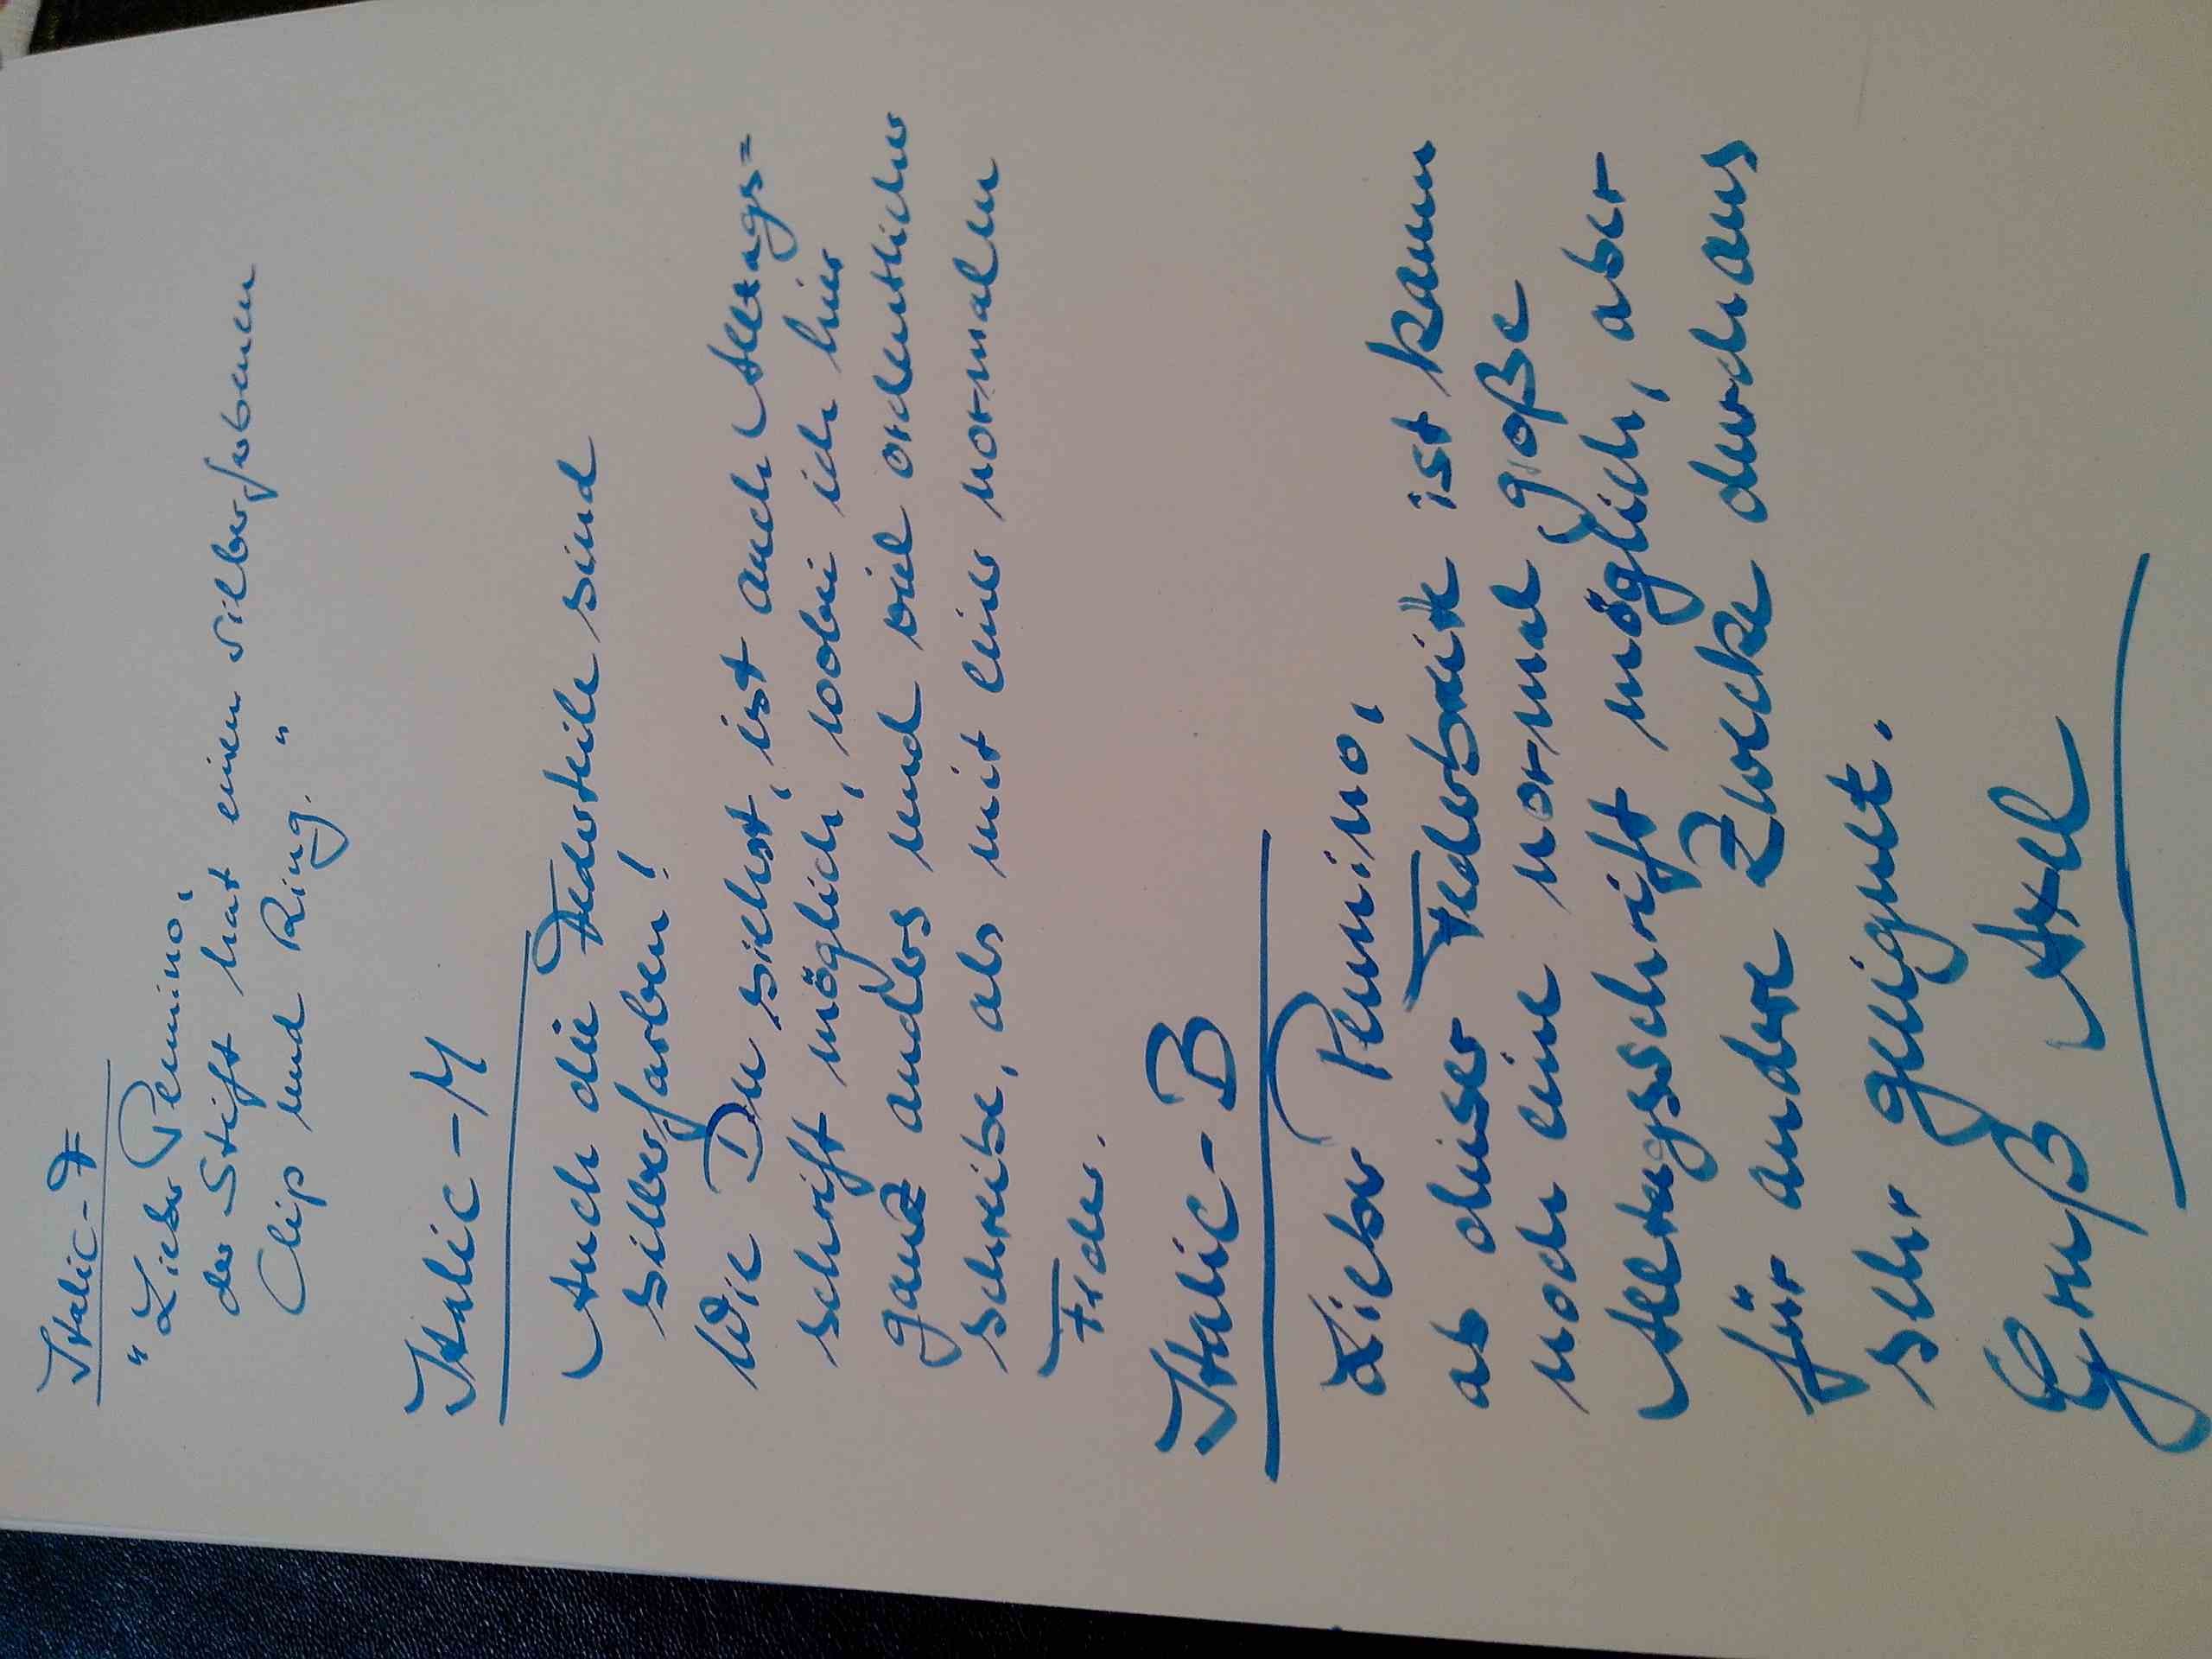 Italic-F
"Lieber Penmino,
der Stift hat einen silberfarbenen
Clip und Ring."
Italic-M
Auch die Federteile sind
silberfarben!
Wie Du siehst, ist auch Alltags=
schrift möglich, wobei ich hier
ganz anders und viel ordentlicher
schreibe, als mit einer normalen
Feder.
Italic-B
Lieber Penmino,
ab dieser Federbreite ist kaum
noch eine normal goße
Alltagsschrift möglich, aber
für andere Zwecke durchaus
sehr geeignet.
Gruß Axel